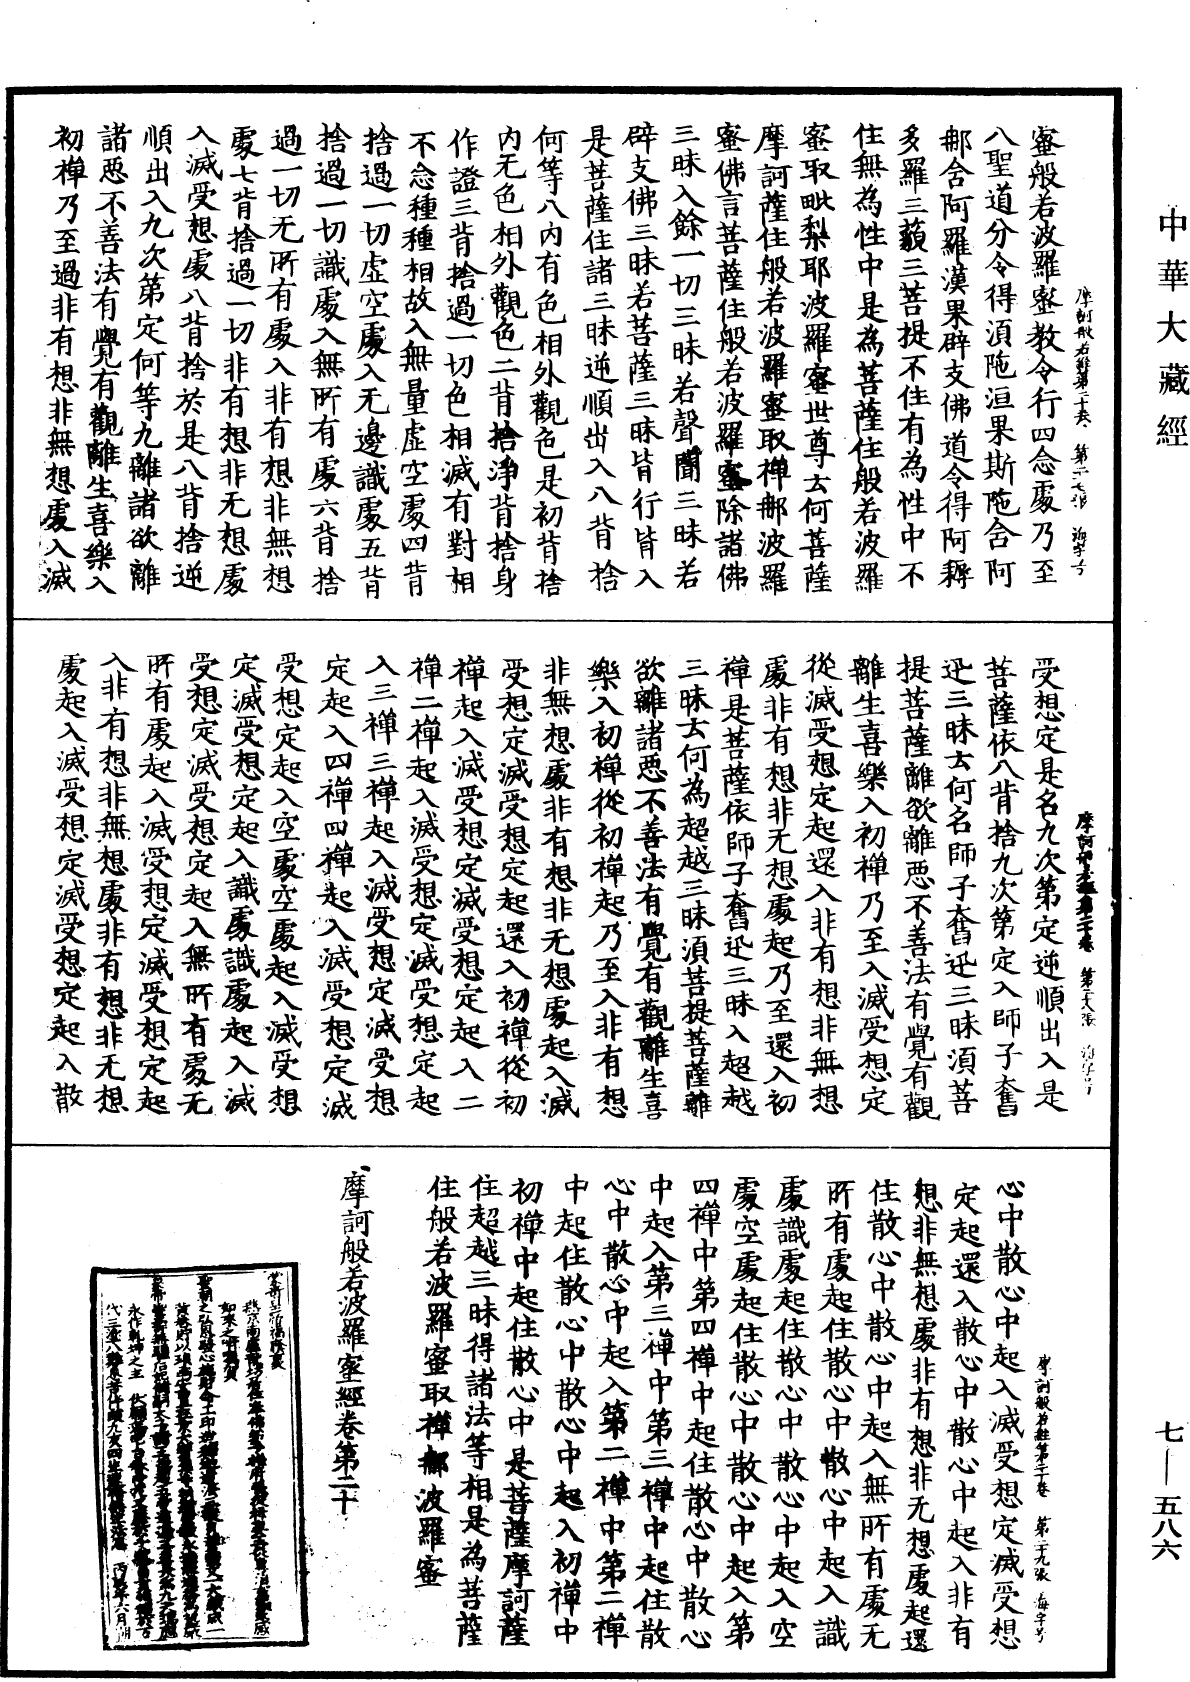 中華大藏經
七—五八六
摩訶般若經第二十卷 第二七張 海字号
蜜般若波羅蜜教令行四念處乃至
八聖道分令得湏陁洹果斯陁含阿
那舍阿羅漢果辟支佛道令得阿耨
多羅三藐三菩提不住有為性中不
住無為性中是為菩薩住般若波羅
蜜取毗梨耶波羅蜜世尊云何菩薩
摩訶薩住般若波羅蜜取禪那波羅
蜜佛言菩薩住般若波羅蜜除諸佛
三昧入餘一切三昧若聲聞三昧若
辟支佛三昧若菩薩三昧皆行皆入
是菩薩住諸三昧逆順出入八背捨
何等八內有色相外觀色是初背捨
內无色相外觀色二背捨淨背捨身
作證三背捨過一切色相滅有對相
不念種種相故入無量虛空處四背
捨過一切虛空處入无邊識處五背
捨過一切識處入無所有處六背捨
過一切无所有處入非有想非無想
處七背捨過一切非有想非无想處
入滅受想處八背捨於是八背捨逆
順出入九次第定何等九離諸欲離
諸惡不善法有覺有觀離生喜樂入
初禪乃至過非有想非無想處入滅
摩訶般若經第二十卷 第二十八張 海字号
受想定是名九次第定逆順出入是
菩薩依八背捨九次第定入師子奮
迅三昧云何名師子奮迅三昧湏菩
提菩薩離欲離惡不善法有覺有觀
離生喜樂入初禪乃至入滅受想定
從滅受想定起還入非有想非無想
處非有想非无想處起乃至還入初
禪是菩薩依師子奮迅三昧入超越
三昧云何為超越三昧湏菩提菩薩離
欲離諸惡不善法有覺有觀離生喜
樂入初禪從初禪起乃至入非有想
非無想處非有想非无想處起入滅
受想定滅受想定起還入初禪從初
禪起入滅受想定滅受想定起入二
禪二禪起入滅受想定滅受想定起
入三禪三禪起入滅受想定滅受想
定起入四禪四禪起入滅受想定滅
受想定起入空處空處起入滅受想
定滅受想定起入識處識處起入滅
受想定滅受想定起入無所有處无
所有處起入滅受想定滅受想定起
入非有想非無想處非有想非无想
處起入滅受想定滅受想定起入散
摩訶般若經第二十卷 第二十九張 海字号
心中散心中起入滅受想定滅受想
定起還入散心中散心中起入非有
想非無想處非有想非无想處起還
住散心中散心中起入無所有處无
所有處起住散心中散心中起入識
處識處起住散心中散心中起入空
處空處起住散心中散心中起入第
四禪中第四禪中起住散心中散心
中起入第三禪中第三禪中起住散
心中散心中起入第二禪中第二禪
中起住散心中散心中起入初禪中
初禪中起住散心中是菩薩摩訶薩
住超越三昧得諸法等相是為菩薩
住般若波羅蜜取禪那波羅蜜
摩訶般若波羅蜜經卷第二十